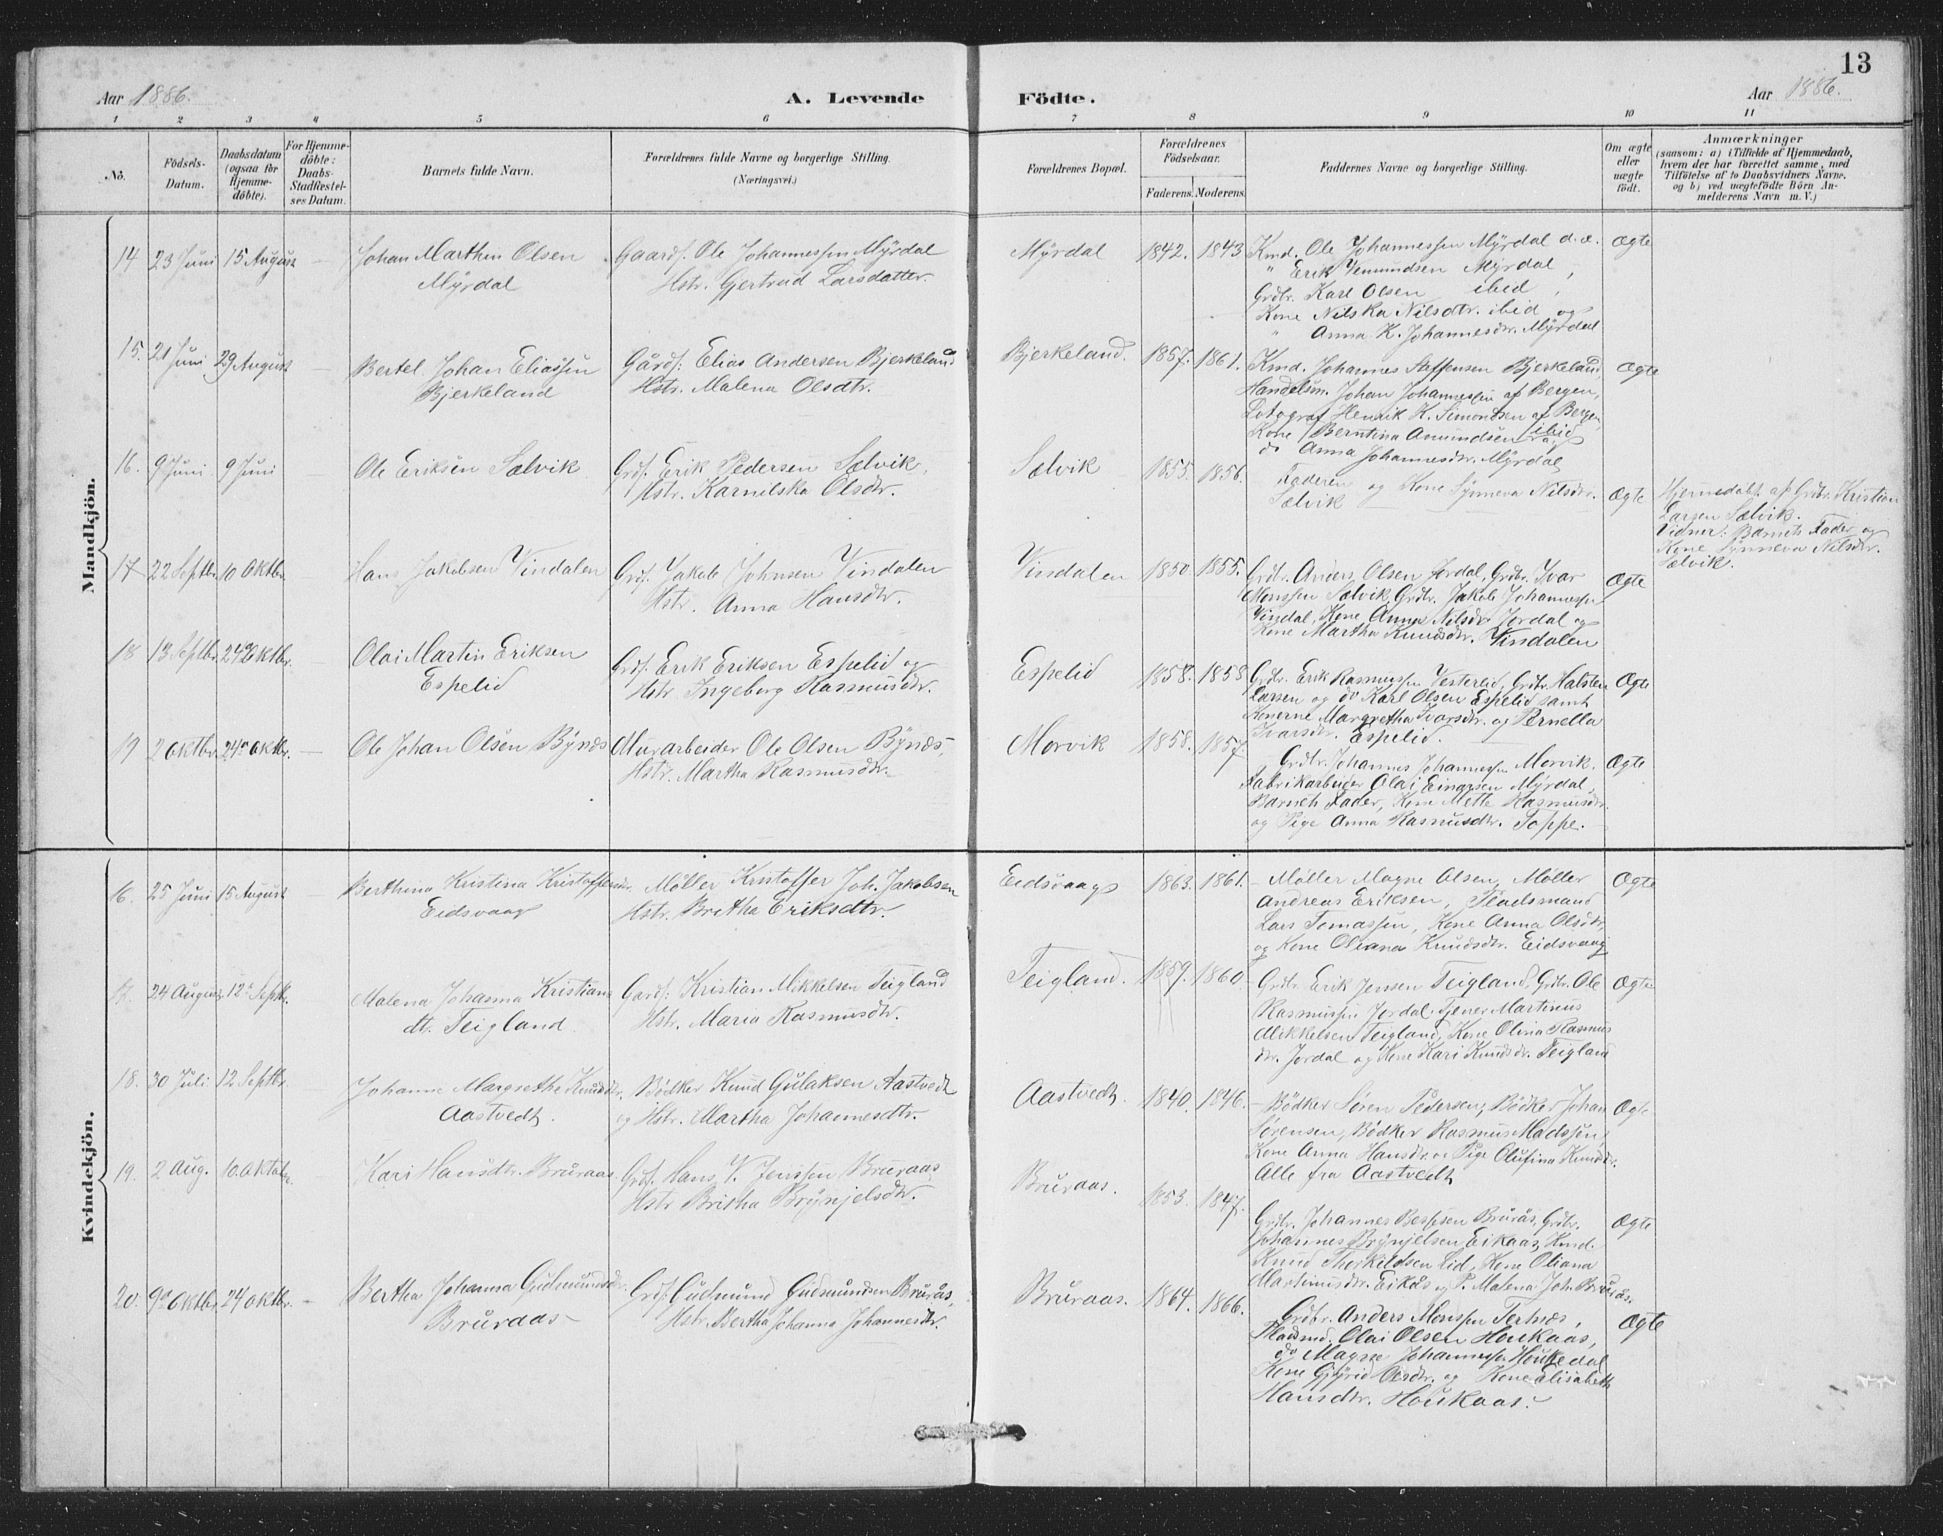 13
Aar 1886.
A. Levende Födte.
Aar 1886.
1 2 3 4 5 6 7 8 9 10 11
No.
Födsels-Datum.
Daabsdatum (ogsaa for Hjemme-döbte).
For Hjemme-döbte: Daabs-Stadfæstel-ses Datum.
Barnets fulde Navn.
Forældrenes fulde Navne og borgerlige Stilling.
(Næringsvei.)
Forældrenes Bopæl.
Forældrenes Födselsaar.
Faderens. Moderens.
Faddernes Navne og borgerlige Stilling.
Om ægte eller uægte födt.
Anmærkninger
(saasom: a) i Tilfælde af Hjemmedaab,
hvem der har forrettet samme, med
Tilföielse af to Daabsvidners Navne,
og b) ved uægtefödte Börn An-
melderens Navn m. V.)
Mandkjön.
14 23 Juni 15 August — Johan Marthin Olsen
Myrdal
Gaardf. Ole Johannessen Myrdal
Hstr. Gjertrud Larsdatter.
Myrdal 1842. 1843.
Kmd. Ole Johannessen Myrdal d.æ.
" Erik Monsen Myrdal,
Grdbr. Karl Olsen ibid,
Kone Nilska Nilsdtr. ibid og
" Anna K. Johannesdr. Myrdal
Ægte
15. 21 Juni 29 August — Bertel Johan Eliassen
Bjerkeland
Gårdf: Elias Andersen Bjerkeland
Hstr. Malena Olsdtr.
Bjerkeland. 1857. 1861.
Kmd. Johannes Steffensen Bjerkeland,
Handelsm. Johan Johannessen af Bergen,
Fotograf Henrik K. Simondsen af Bergen,
Kone Berntina Amundsen ibid og
do Anna Johannesdr. Myrdal
Ægte
16. 9 Juni 9 Juni Ole Eriksen Sælvik
Grdf. Erik Pedersen Sælvik,
Hstr. Karnilska Olsdtr.
Sælvik 1855. 1856.
Faderen og Kone Synneva Nilsdtr.
Sælvik
Ægte
Hjemmedøbt af Grdbr. Kristian
Larsen Sælvik.
Vidner: Barnets Fader og
Kone Synneva Nilsdtr.
Sælvik.
17 22 Septbr. 10 Oktbr. — Hans Jakobsen Vindalen
Grdf. Jakob Johnsen Vindalen
Hstr. Anna Hansdtr.
Vindalen 1850 1855.
Grdbr. Anders Olsen Jordal, Grdbr. Ivar
Monssen Sælvik, Grdbr. Jakob Johannessen
Vindal, Kone Anna Nilsdr. Jordal og
Kone Martha Knudsdtr. Vindalen
Ægte
18 13 Septbr. 24 Oktbr. — Olai Martin Eriksen
Espelid
Grdf. Erik Eriksen Espelid og
Hstr. Ingeborg Rasmusdtr.
Espelid 1858. 1858
Grdbr. Erik Rasmussen Vesterlid, Grdbr. Halsten
Larsen og do Karl Olsen Espelid samt
Konerne Margretha Ivarsdtr. og Pernella
Ivarsdr. Espelid.
Ægte
19 2 Oktbr. 24 Oktbr. — Ole Johan Olsen Bynæs
Murarbeider Ole Olsen Bynæs,
Hstr. Martha Rasmusdtr.
Morvik 1858. 1857.
Grdbr. Johannes Johannessen Morvik,
Fabrikarbeider Olai Einarsen Myrdal,
Barnets Fader, Kone Mette Rasmusdtr.
og Pige Anna Rasmusdtr. Toppe.
Ægte
Kvindekjön.
16. 25 Juni 15 August — Berthina Kristina Kristoffersdr.
Eidsvaag
Möller Kristoffer Joh. Jakobsen
Hstr. Britha Eriksdtr.
Eidsvaag 1863. 1861.
Møller Magne Olsen, Møller
Andreas Eriksen, Pladsmand
Lars Tomassen, Kone Anna Olsdtr.
og Kone Oliana Knudsdtr. Eidsvaag
Ægte
17. 24 August 12 Septbr. Malena Johanna Kristians
dtr. Teigland
Gardf: Kristian Mikkelsen Teigland
Hstr. Maria Rasmusdtr.
Teigland. 1859. 1860.
Grdbr. Erik Jensen Teigland, Grdbr. Ole
Rasmussen Jordal, Tjener Martinus
Mikkelsen Teigland, Kone Olina Rasmus
dr. Jordal og Kone Kari Knudsdr. Teigland
Ægte
18. 30 Juli 12 Septbr. Johanne Margrethe Knudsdr.
Aastvedt.
Bödker Knud Gulaksen Aastvedt
og Hstr. Martha Johannesdtr.
Aastvedt. 1840. 1846.
Bödker Sören Pedersen, Bödker Johan
Sörensen, Bödker Rasmus Madssen,
Kone Anna Hansdtr. og Pige Olufina Knudsdr.
Alle fra Aastvedt
Ægte
19. 2 Aug. 10 Oktobr. Kari Hansdtr. Bruraas.
Grdf. Hans V. Jenssen Bruraas
Hstr Britha Brynjelsdtr.
Bruraas. 1853. 1847.
Grdbr. Johannes Bessesen Brurås, Grdbr.
Johannes Brynjelsen Eikaas, Kmd.
Knud Thorkeldsen Lid, Kone Oliana
Martinusdtr. Eikås og P. Malena Joh. Brurås.
Ægte
20. 9 Oktbr. 24 Oktbr. — Bertha Johanna Gudmundsdr.
Bruraas
Grdf. Gudmund Gudmundsen Brurås,
Hstr. Bertha Johanna Johannesdr.
Bruraas. 1864. 1866.
Grdbr. Anders Monssen Tertnæs,
Pladsmd. Olai Olsen Houkaas,
do Magne Johannessen Houkedal
Kone Gjyrid Olsdtr. og Kone Elisabeth
Hansdtr. Houkaas.
Ægte